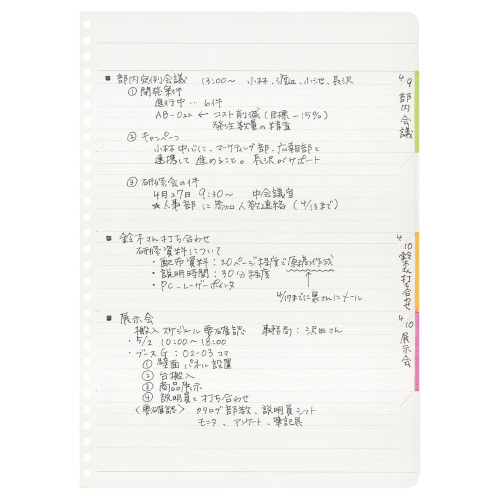 ■ 部内定例会議 13:00～ 小林、渡辺、小池、長沢
① 開発案件
進行中… 6件
AB-022 ← コスト削減(目標-15%)
発注数量の精査
② キャンペーン
小林中心に、マーケティング部、広報部と
連携して進めること。長沢がサポート
③ 研修会の件
4月27日 9:30～ 中会議室
★人事部に参加人数連絡(4/13まで)
■ 鈴木さん打ち合わせ
研修資料について
・配布資料：20ページ程度で原稿の作成
・説明時間：30分程度
・PC、レーザーポインタ
4/17までに集さんにメール
■ 展示会
搬入スケジュール要確認 事務局：沢田さん
・5/2 10:00～18:00
・ブースG：02-03コマ
① 壁面パネル設置
② 台搬入
③ 商品展示
④ 説明員と打ち合わせ
〈要確認〉 カタログ部数、説明員シフト
モニタ、アンケート、筆記具
4/9 部内会議
4/10 鈴木さん打ち合わせ
4/10 展示会